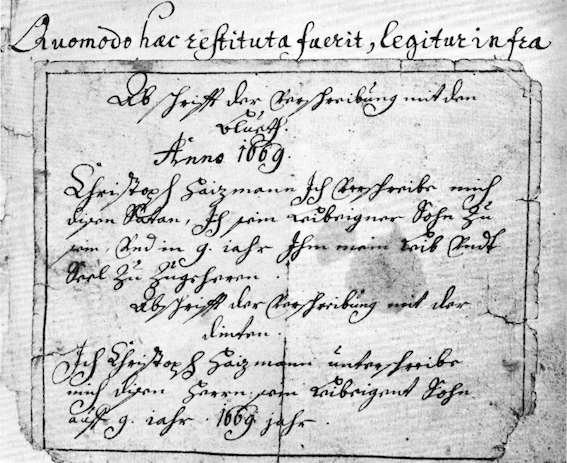 Quomodo hæc restituta fuerit, legitur infra
Abschrifft der Verschreibung mit den
bluett.
Anno 1669.
Christoph Haizmann Ich Verschreibe mich
disen Satan, Ich sein Leibeigner Sohn Zu
sein, Vnd in 9. iahr Ihm mein leib Vndt
Seel Zu Zugeheren.
Abschrifft der Verschreibung mit der
dinten.
Ich Christoph Haizmann unterschreibe
mich disen Herrn sein Leibeigent Sohn
auff 9. iahr. 1669 jahr.